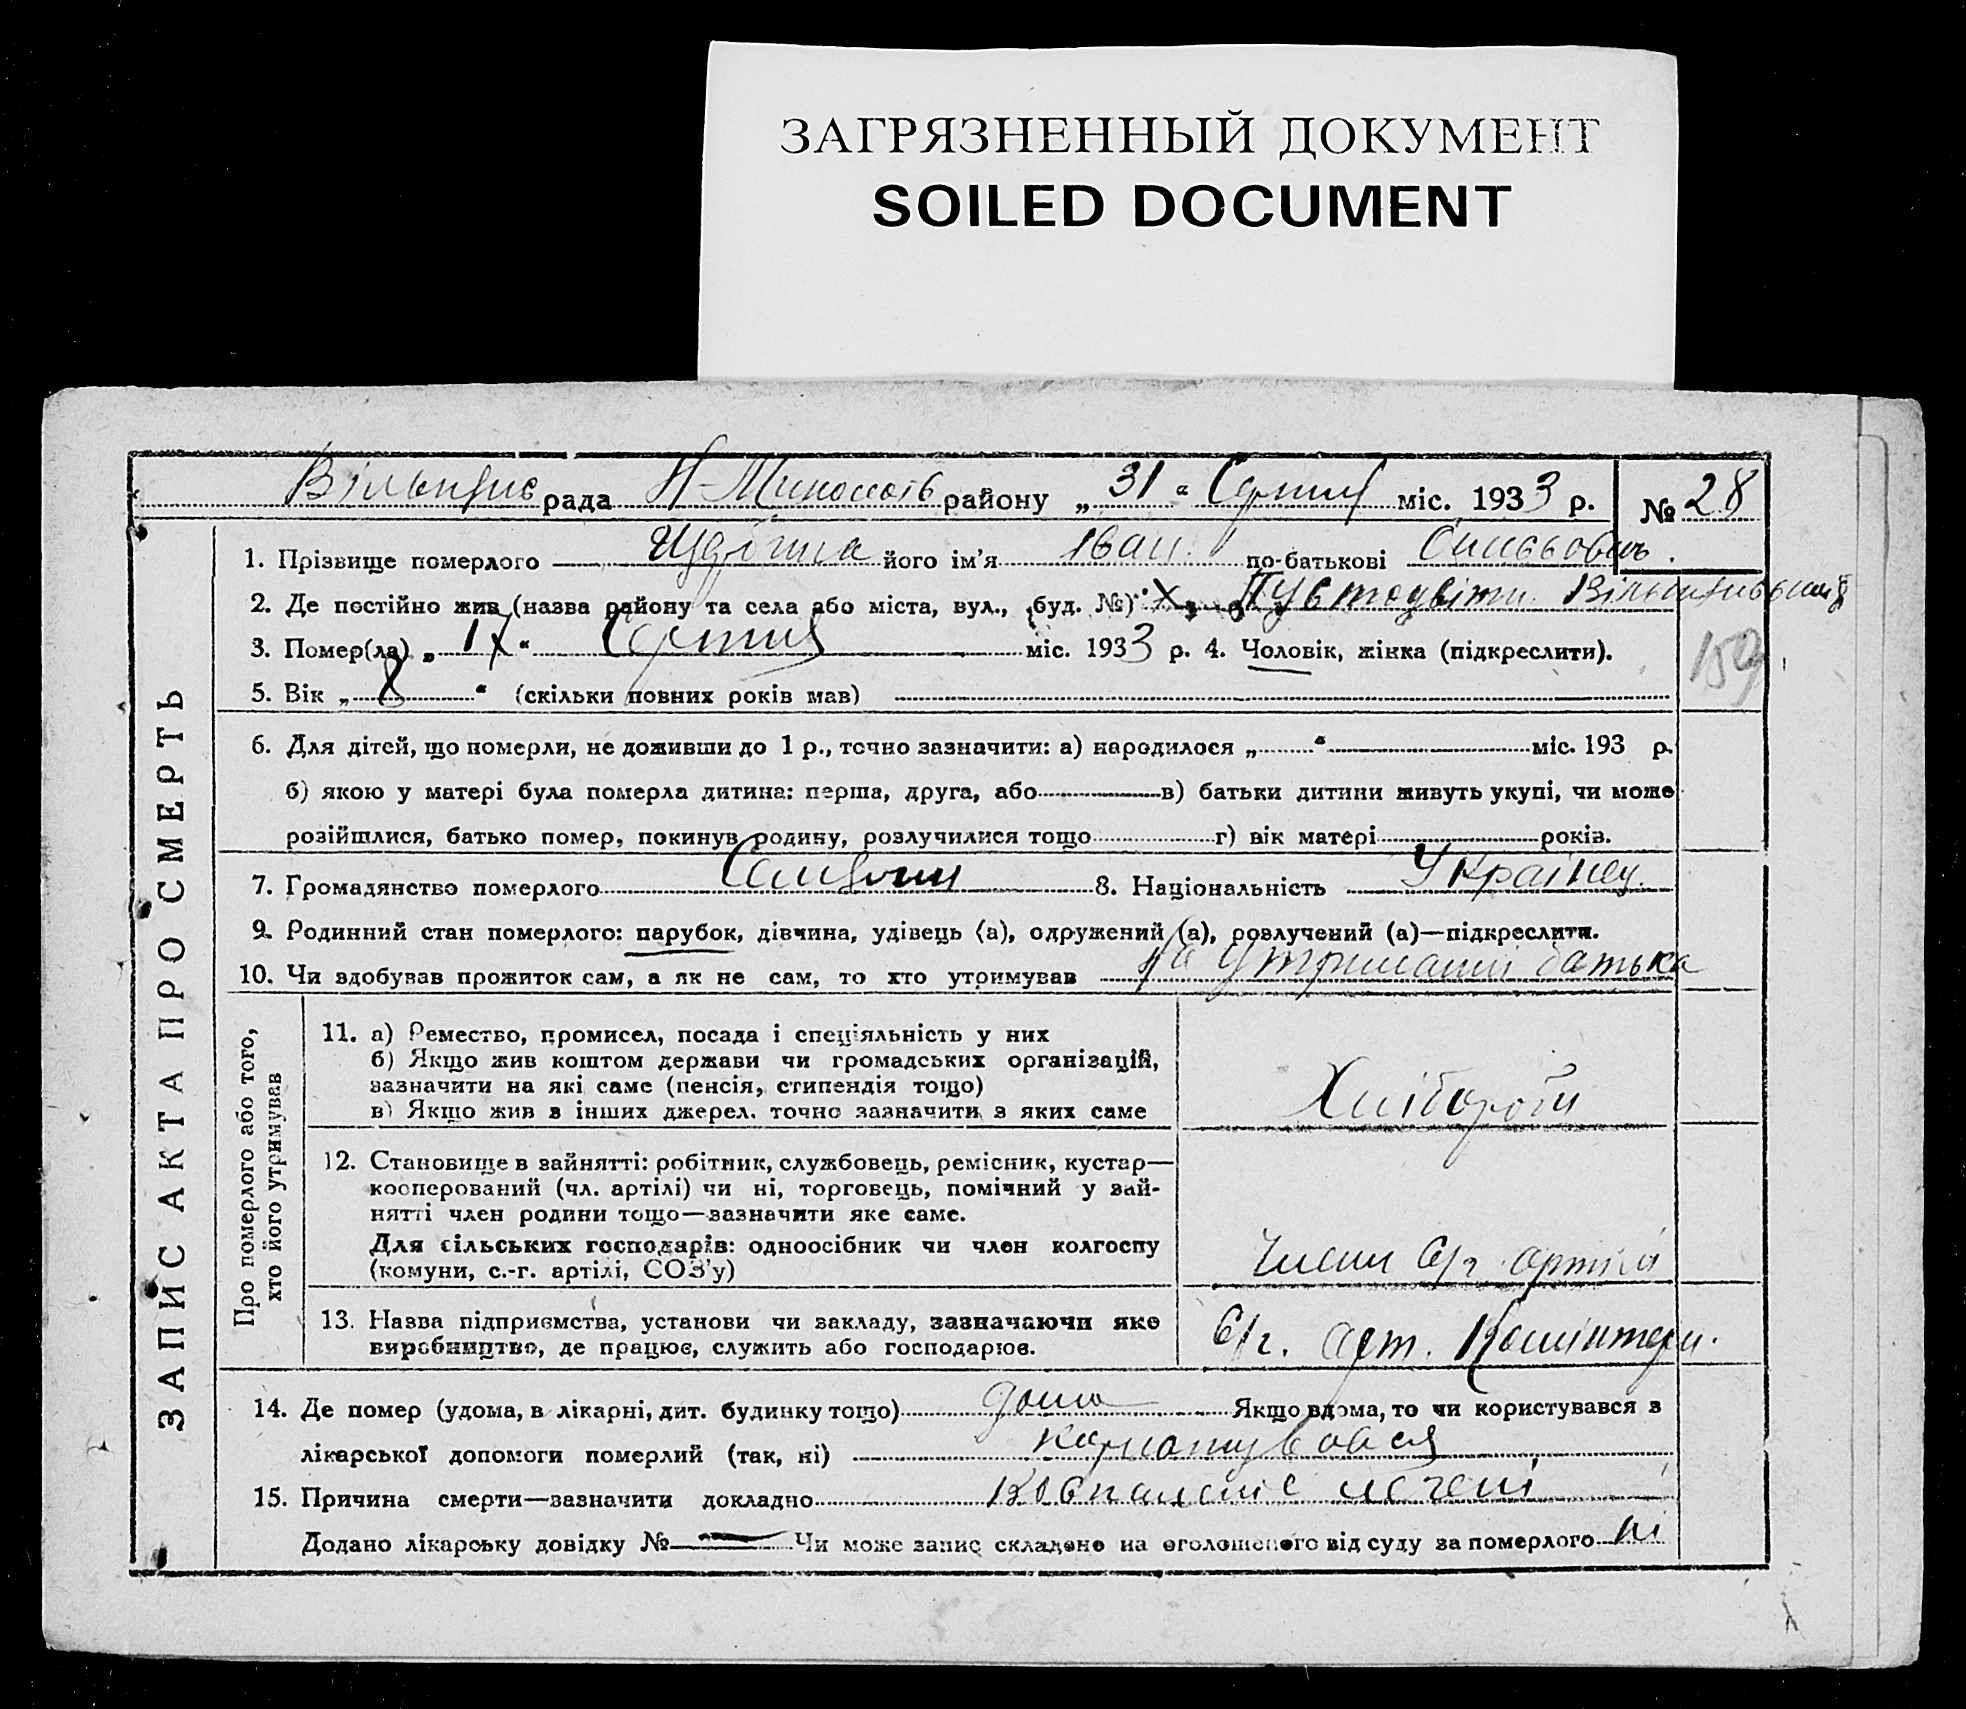 ЗАГРЯЗНЕННЫЙ ДОКУМЕНТ
SOILED DOCUMENT
рада Н-Миколаїв району „31“ Серпня міс. 1933 р. № 28
1. Прізвище померлого його ім'я Іван по-батькові
2. Де постійно жив (назва району та села або міста, вул., буд. №) х. Пустоцвіти
3. Помер(ла) „ “ Серпня міс. 1933 р. 4. Чоловік, жінка (підкреслити).
159
5. Вік „8“ (скільки повних років мав)
6. Для дітей, що померли, не доживши до 1 р., точно зазначити: а) народилося „ “ міс. 193 р.
б) якою у матері була померла дитина: перша, друга, або в) батьки дитини живуть укупі, чи може
розійшлися, батько помер, покинув родину, розлучилися тощо г) вік матері років.
7. Громадянство померлого 8. Національність Українец.
9. Родинний стан померлого: парубок, дівчина, удівець (а), одружений (а), розлучений (а)—підкреслити.
10. Чи здобував прожиток сам, а як не сам, то хто утримував на утриманні батька
ЗАПИС АКТА ПРО СМЕРТЬ
Про померлого або того,
хто його утримував
11. а) Ремество, промисел, посада і спеціяльність у них
б) Якщо жив коштом держави чи громадських організацій,
зазначити на які саме (пенсія, стипендія тощо)
в) Якщо жив з інших джерел. точно зазначити з яких саме
Хлібороби
12. Становище в зайнятті: робітник, службовець, ремісник, кустар—
кооперований (чл. артілі) чи ні, торговець, помічний у зай-
нятті член родини тощо—зазначити яке саме.
Для сільських господарів: одноосібник чи член колгоспу
(комуни, с.-г. артілі, СОЗ'у)
Члени С/г артілі
13. Назва підприємства, установи чи закладу, зазначаючи яке
виробництво, де працює, служить або господарює.
С/г. арт. Комінтерн.
14. Де помер (удома, в лікарні, дит. будинку тощо) дома Якщо вдома, то чи користувався з
лікарської допомоги померлий (так, ні) користувався
15. Причина смерти—зазначити докладно
Додано лікарську довідку №— Чи може запис складено на оголошеного від суду за померлого ні